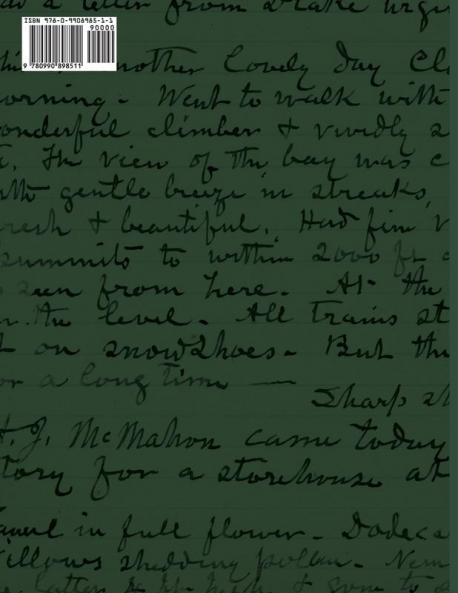 a letter from Blake
ISBN 978-0-9906965-1-1
90000
9 780990 898511
another lovely day Cl
orning - Went to walk with
onderful climber & vividly
The view of the bay was c
gentle breeze in streaks,
resh & beautiful. Had fine v
summits to within 2000 ft
seen from here. At the
the level. All trains st
on snowshoes - But the
or a long time —
Sharp sh
H. J. McMahon came today
tory for a storehouse at
in full flower. Dodeca
illows shedding pollen.
letter